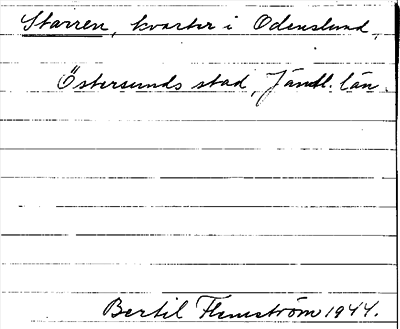 Starren, kvarter i Odenslund,
Östersunds stad, Jämtl. län.
Bertil Flemström 1944.